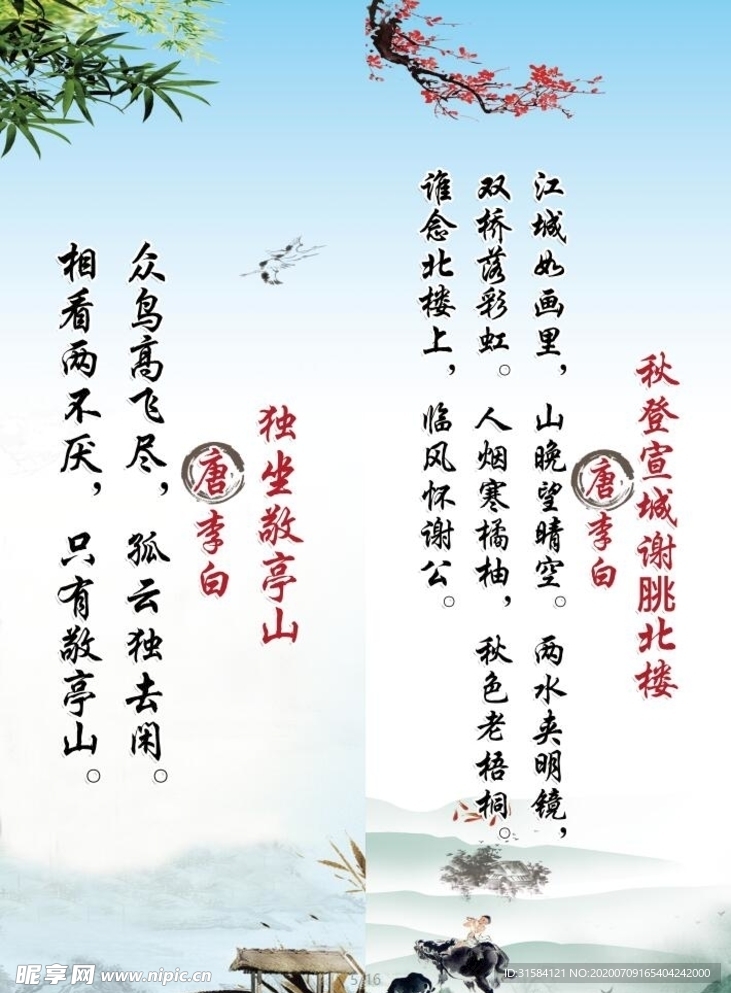 秋登宣城谢朓北楼
唐
李白
江城如画里，山晚望晴空。两水夹明镜，
双桥落彩虹。人烟寒橘柚，秋色老梧桐。
谁念北楼上，临风怀谢公。
独坐敬亭山
唐
李白
众鸟高飞尽，孤云独去闲。
相看两不厌，只有敬亭山。
昵享网 www.nipic.cn
ID:31584121 NO:20200709165404242000